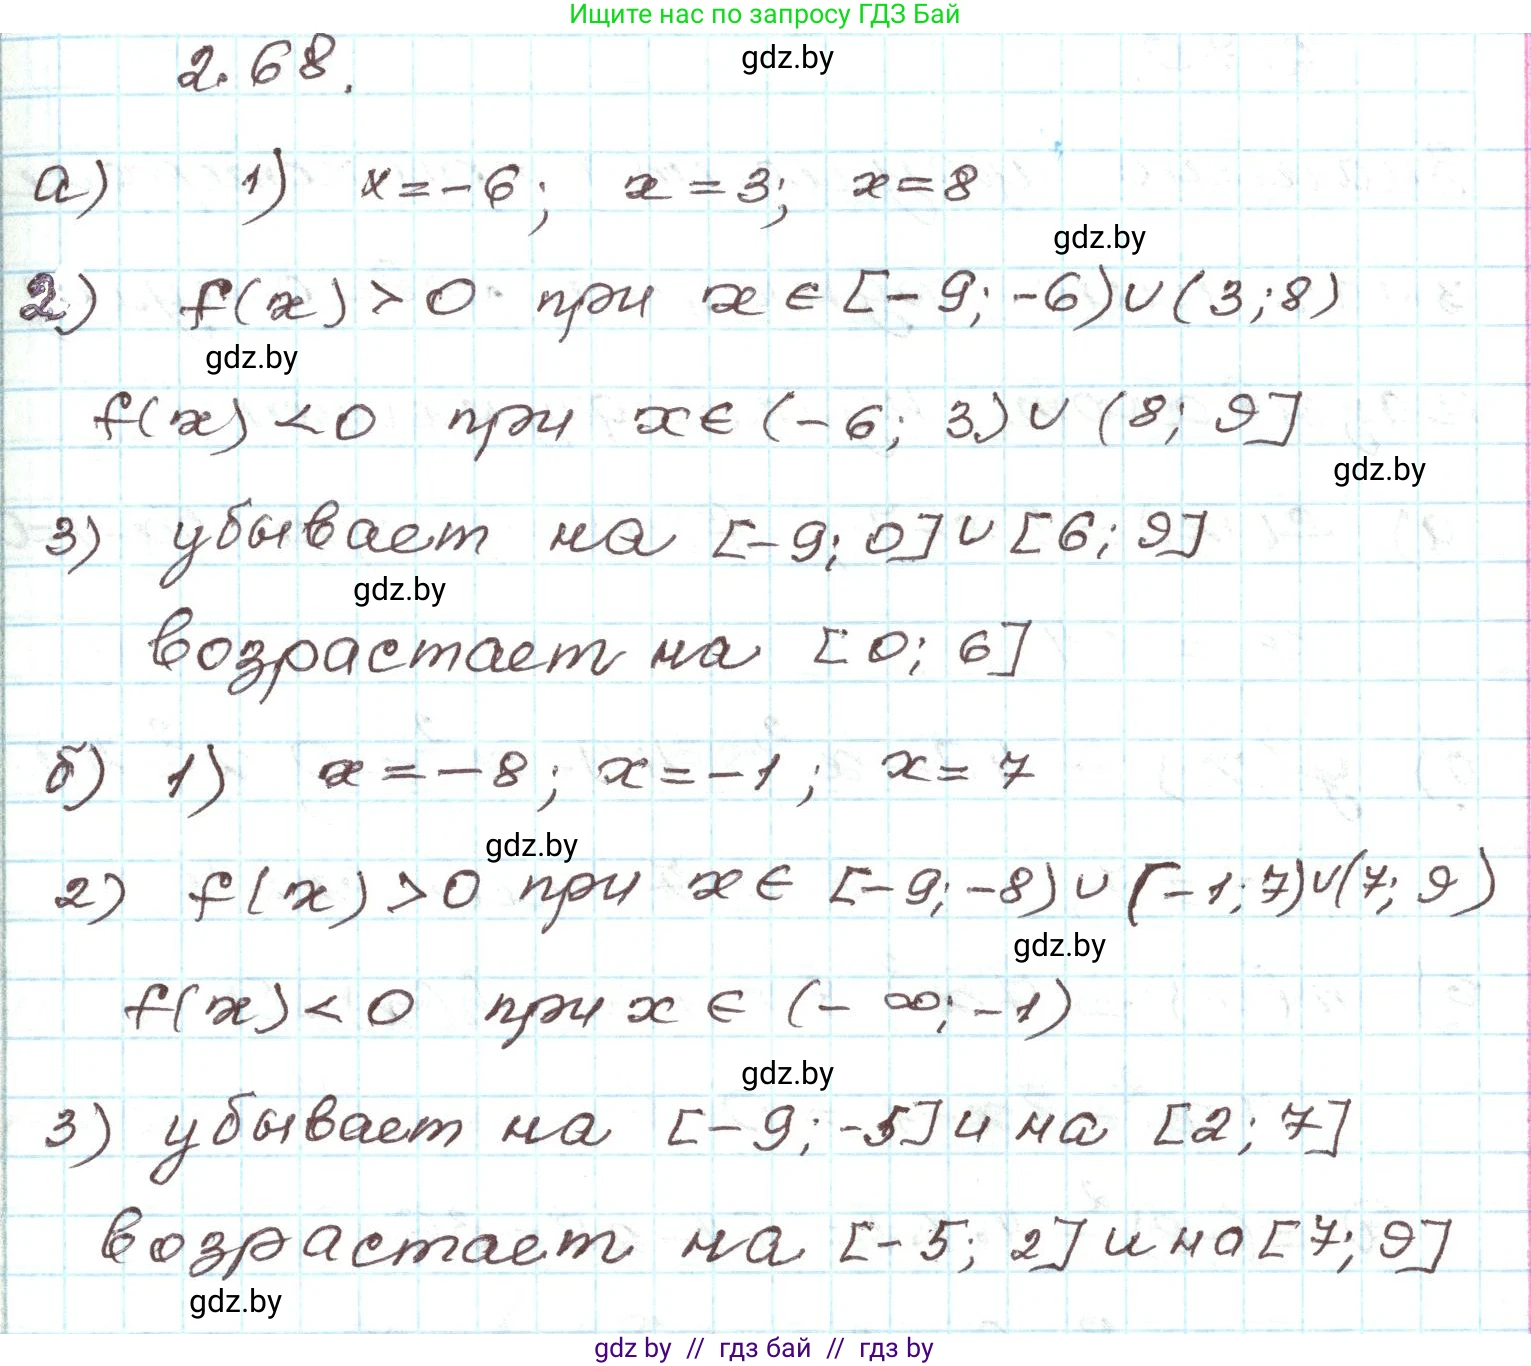 Ищите нас по запросу ГДЗ Бай
2.68.
gdz.by
а) 1) x = -6; x = 3; x = 8
gdz.by
2) f(x) > 0 при x ∈ [-9; -6) ∪ (3; 8)
gdz.by
f(x) < 0 при x ∈ (-6; 3) ∪ (8; 9]
gdz.by
3) убывает на [-9; 0] ∪ [6; 9]
gdz.by
возрастает на [0; 6]
б) 1) x = -8; x = -1; x = 7
gdz.by
2) f(x) > 0 при x ∈ [-9; -8) ∪ (-1; 7) ∪ (7; 9)
gdz.by
f(x) < 0 при x ∈ (-∞; -1)
gdz.by
3) убывает на [-9; -5] и на [2; 7]
возрастает на [-5; 2] и на [7; 9]
gdz.by
gdz by // гдз бай // гдз by